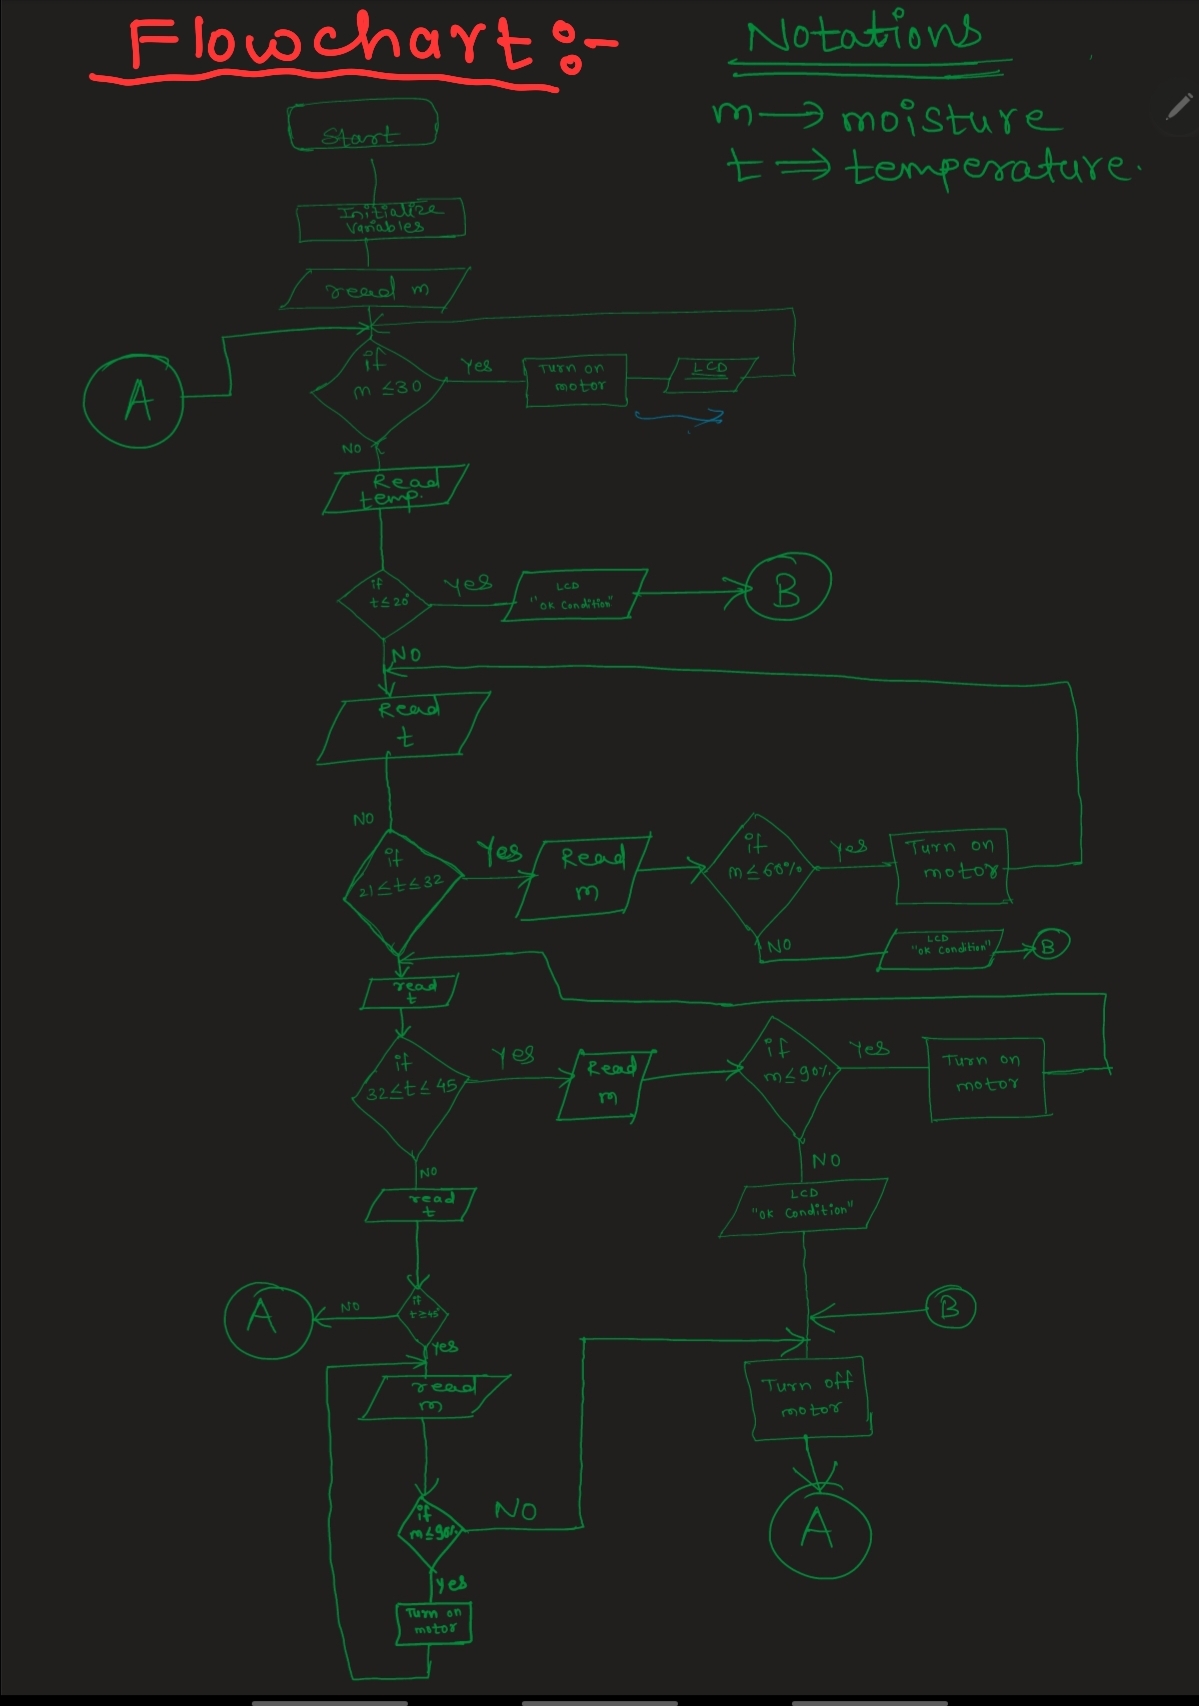 Flowchart :-
Notations
m → moisture
t ⇒ temperature.
Start
Initialize
Variables
read m
A
if
m ≤30
Yes
Turn on
motor
LCD
NO
Read
temp.
if
t≤20°
Yes
LCD
"OK Condition"
B
NO
Read
t
NO
if
21≤t≤32
Yes
Read
m
if
m≤60%
Yes
Turn on
motor
NO
LCD
"OK Condition"
B
read
t
if
32≤t≤45
Yes
Read
m
if
m≤90%
Yes
Turn on
motor
NO
NO
read
t
LCD
"OK Condition"
A
NO
if
t≥45°
B
Yes
read
m
Turn off
motor
if
m≤90%
NO
A
Yes
Turn on
motor